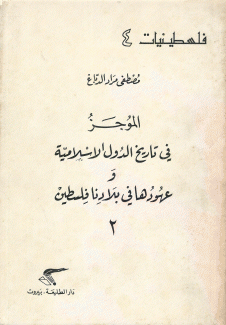 فلسطينيات ٤
مصطفى مراد الدباغ
الموجز
في تاريخ الدول الاسلامية
و
عهودها في بلادنا فلسطين
٢
دار الطليعة. بيروت